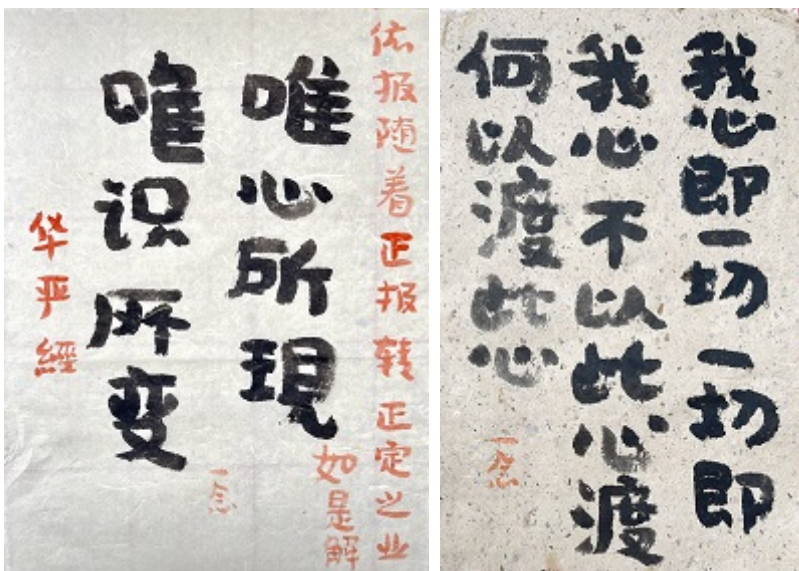 依报随着正报转正定之业
如是解
唯心所現
唯识所变
一念
华严經
我心即一切一切即
我心不以此心渡
何以渡此心
一念